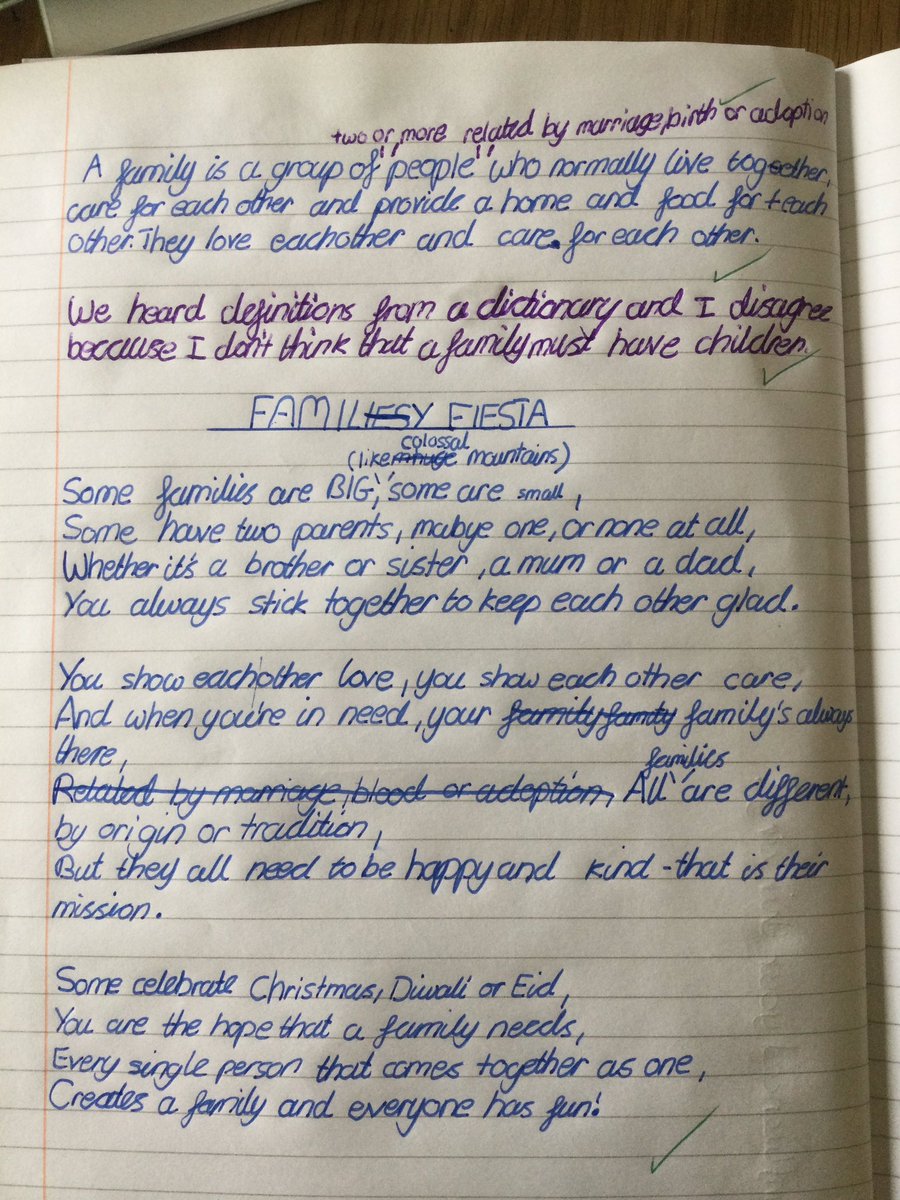 two or more related by marriage, birth or adoption
A family is a group of people who normally live together,
care for each other and provide a home and food for each
other. They love eachother and care for each other.
We heard definitions from a dictionary and I disagree
because I don't think that a family must have children.
FAMILIESY FIESTA
colossal
(like huge mountains)
Some families are BIG, some are small,
Some have two parents, mabye one, or none at all,
Whether it's a brother or sister, a mum or a dad,
You always stick together to keep each other glad.
You show eachother love, you show each other care,
And when you're in need, your family family family's always
there,
families
Related by marriage, blood or adoption, All are different,
by origin or tradition,
But they all need to be happy and kind - that is their
mission.
Some celebrate Christmas, Diwali or Eid,
You are the hope that a family needs,
Every single person that comes together as one,
Creates a family and everyone has fun!